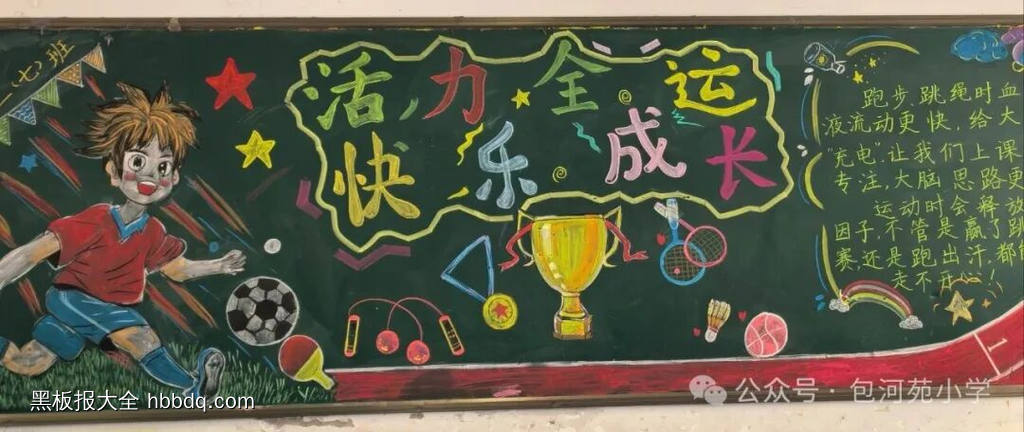 一（七）班
活力全运
快乐成长
跑步、跳绳时血
液流动更快，给大
“充电”，让我们上课
专注，大脑思路更
运动时会释放
因子，不管是赢了跳
赛还是跑出汗，都
走不开
1
黑板报大全 hbbdq.com
公众号·包河苑小学